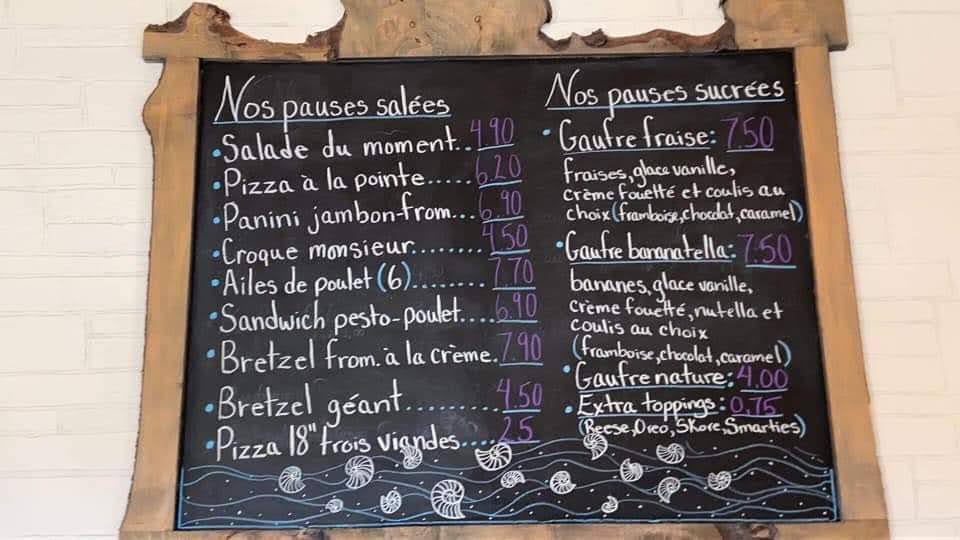 Nos pauses salées
• Salade du moment.. 4.90
• Pizza à la pointe..... 6.20
• Panini jambon-from... 6.90
• Croque monsieur........ 4.50
• Ailes de poulet (6)......... 7.70
• Sandwich pesto-poulet.... 6.90
• Bretzel from. à la crème. 7.90
• Bretzel géant.......... 4.50
• Pizza 18" trois viandes.... 25
Nos pauses sucrées
• Gaufre fraise: 7.50
fraises, glace vanille,
crème fouetté et coulis au
choix (framboise, chocolat, caramel)
• Gaufre bananatella: 7.50
bananes, glace vanille,
crème fouetté, nutella et
coulis au choix
(framboise, chocolat, caramel)
• Gaufre nature: 4.00
• Extra toppings: 0.75
(Reese, Oreo, Skore, Smarties)